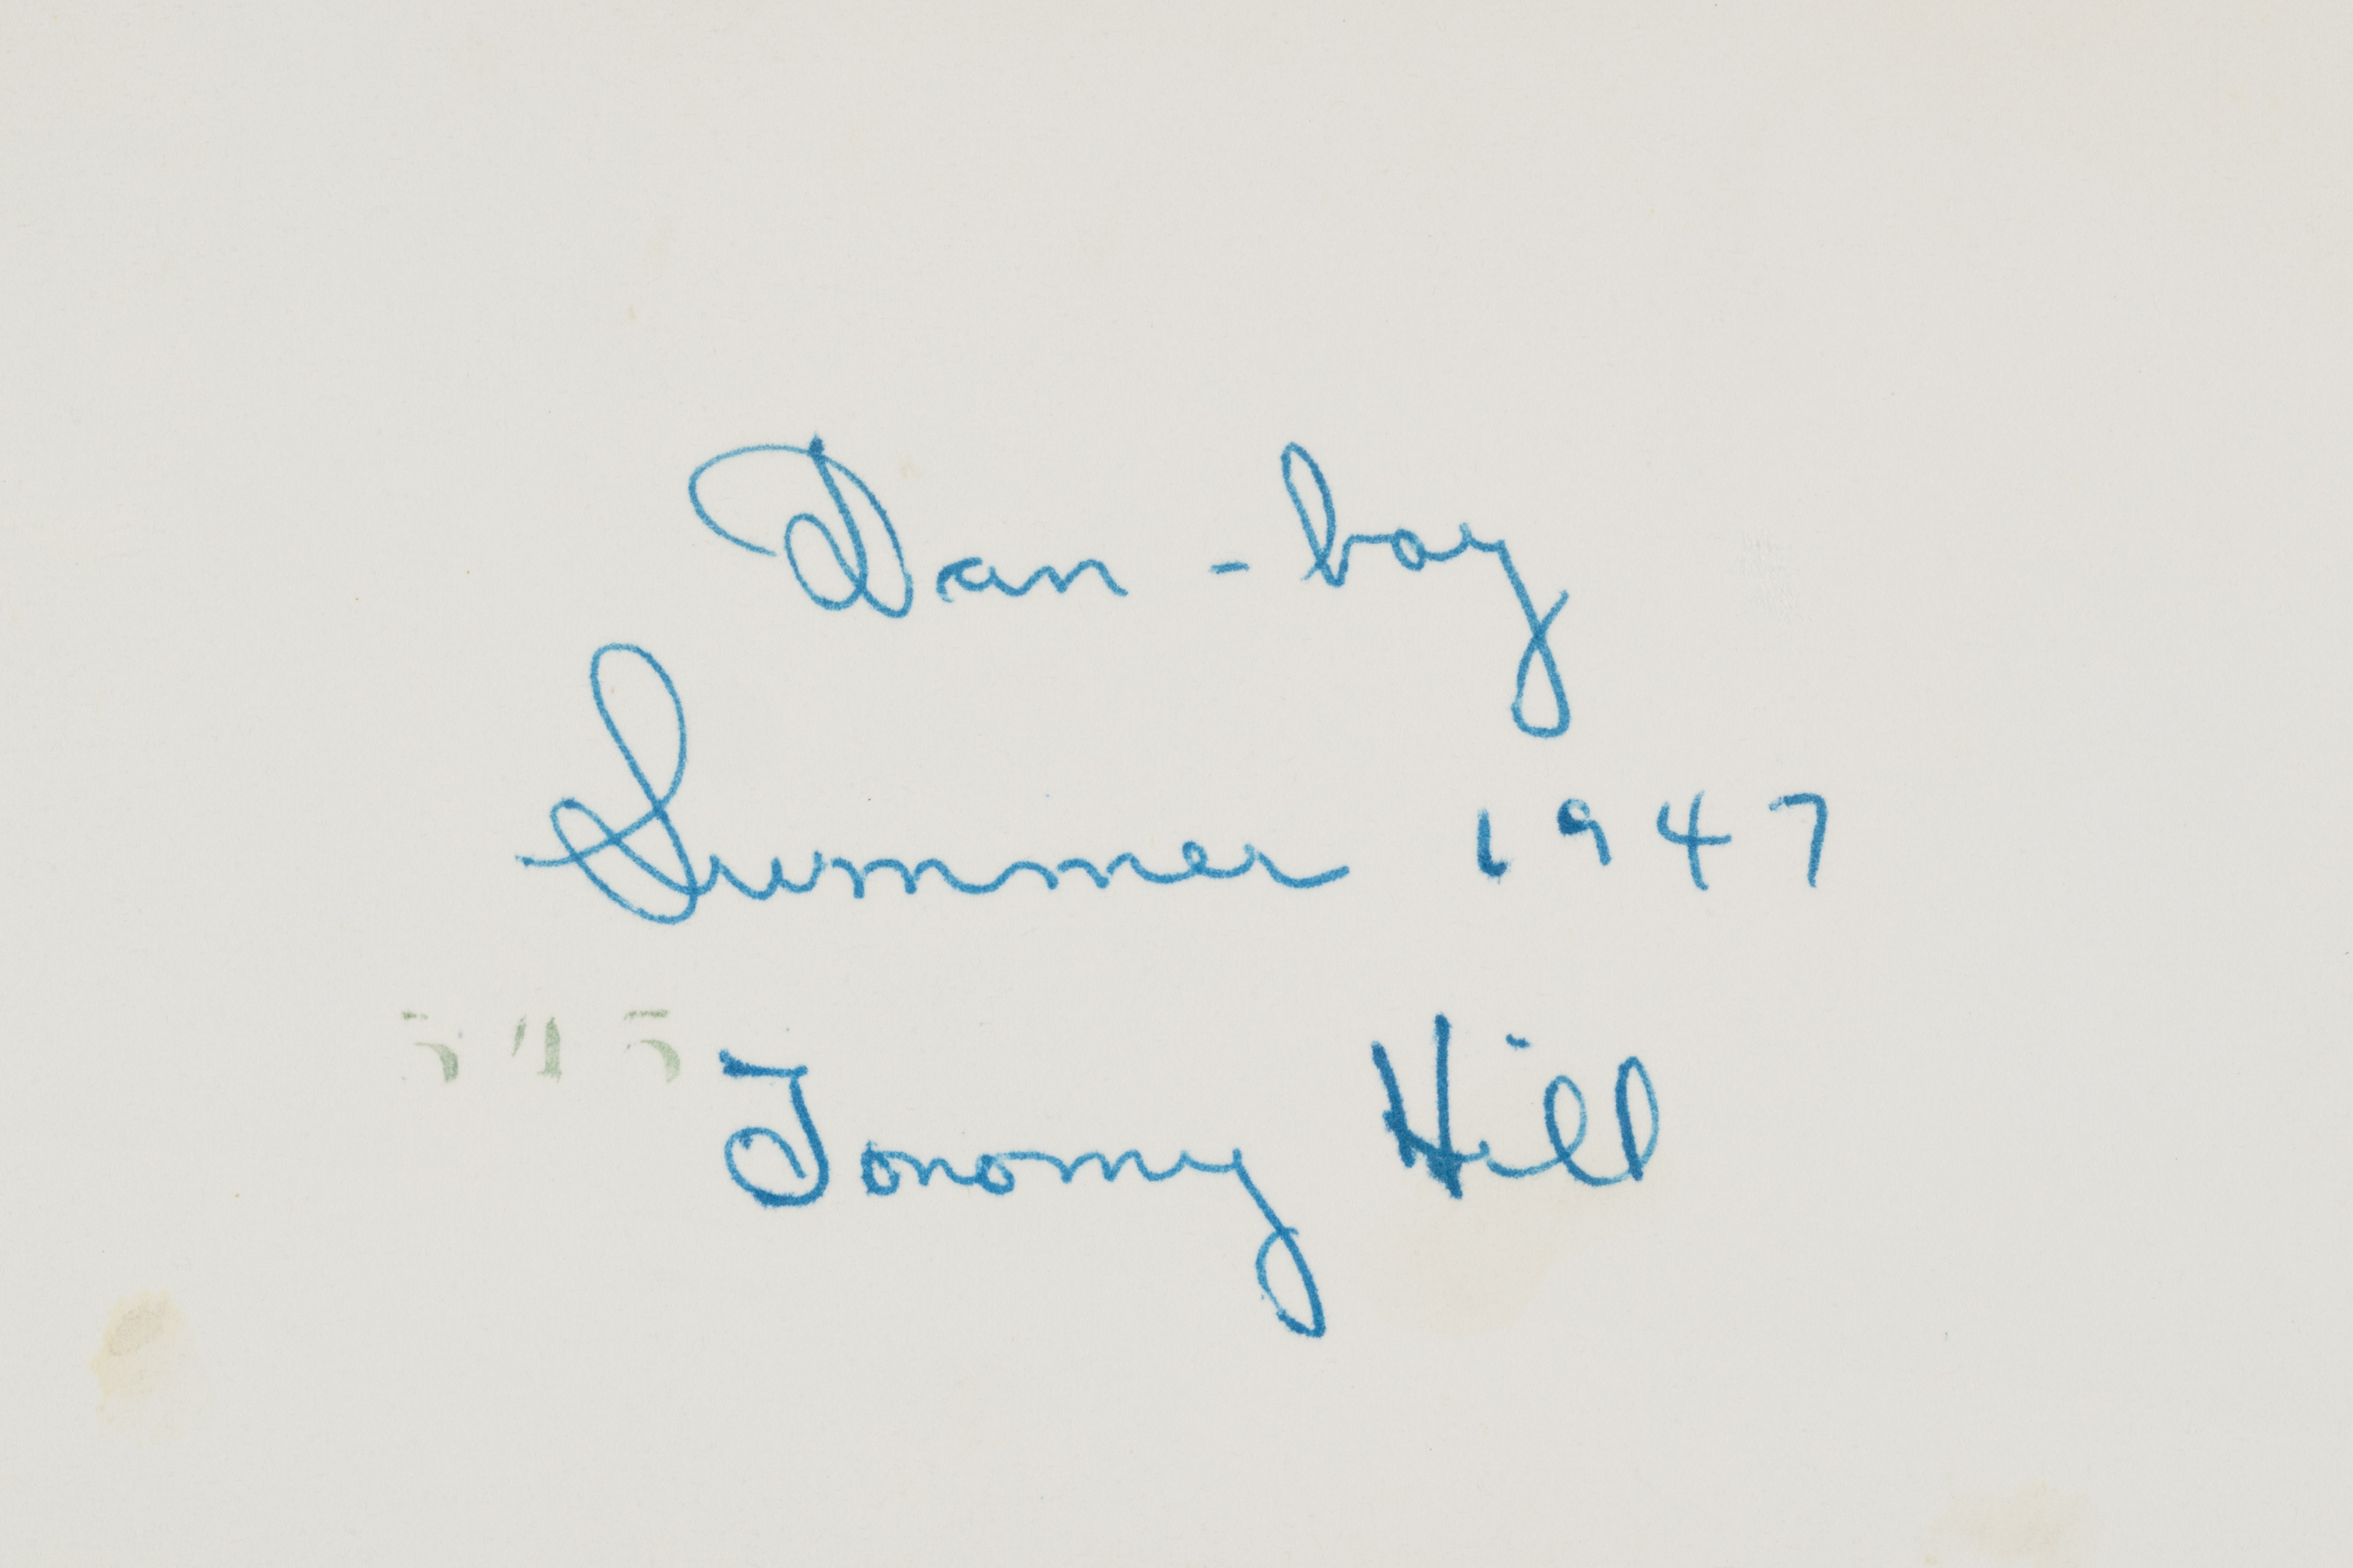 Dan - boy
Summer 1947
545
Tonomy Hill